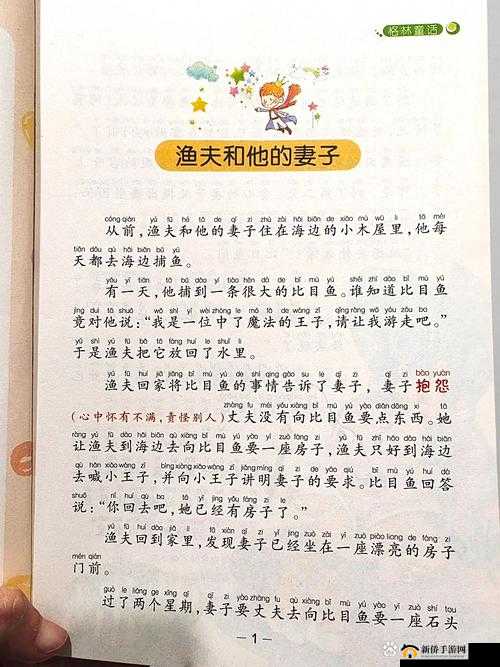 格林童话
渔夫和他的妻子
cóng qián yú fū hé tā de qī zi zhù zài hǎi biān de xiǎo mù wū lǐ tā měi
从前,渔夫和他的妻子住在海边的小木屋里,他每
tiān dōu qù hǎi biān bǔ yú
天都去海边捕鱼。
yǒu yì tiān tā bǔ dào yì tiáo hěn dà de bǐ mù yú shéi zhī dào bǐ mù yú
有一天,他捕到一条很大的比目鱼。谁知道比目鱼
jìng duì tā shuō wǒ shì yí wèi zhòng le mó fǎ de wáng zǐ qǐng ràng wǒ yóu zǒu ba
竟对他说:“我是一位中了魔法的王子,请让我游走吧。”
yú shì yú fū bǎ tā fàng huí le shuǐ lǐ
于是渔夫把它放回了水里。
yú fū huí jiā jiāng bǐ mù yú de shì qing gào su le qī zi qī zi bào yuàn
渔夫回家将比目鱼的事情告诉了妻子,妻子抱怨
zhàng fu méi yǒu xiàng bǐ mù yú yào diǎn dōng xi tā
(心中怀有不满,责怪别人)丈夫没有向比目鱼要点东西。她
ràng yú fū dào hǎi biān qù xiàng bǐ mù yú yào yí zuò fáng zi yú fū zhǐ hǎo dào hǎi biān
让渔夫到海边去向比目鱼要一座房子,渔夫只好到海边
qù hǎn xiǎo wáng zǐ bìng xiàng xiǎo wáng zǐ jiǎng míng qī zi de yāo qiú bǐ mù yú huí dá
去喊小王子,并向小王子讲明妻子的要求。比目鱼回答
shuō nǐ huí qù ba tā yǐ jīng yǒu fáng zi le
说:“你回去吧,她已经有房子了。”
yú fū huí dào jiā lǐ fā xiàn qī zi yǐ jīng zuò zài yí zuò piào liang de fáng zi
渔夫回到家里,发现妻子已经坐在一座漂亮的房子
mén qián
门前。
guò le liǎng gè xīng qī qī zi yào zhàng fu qù xiàng bǐ mù yú yào yí zuò shí tou
过了两个星期,妻子要丈夫去向比目鱼要一座石头
1
新侨手游网